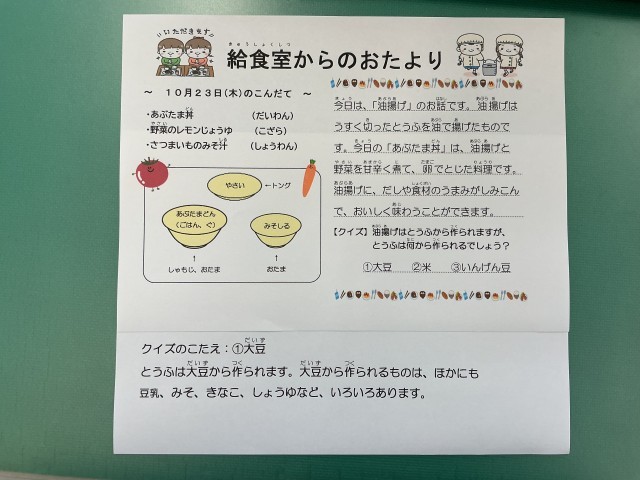 いただきます
給食室からのおたより
～ 10月23日(木)のこんだて ～
・あぶたま丼 (だいわん)
・野菜のレモンじょうゆ (こざら)
・さつまいものみそ汁 (しょうわん)
やさい ←トング
あぶたまどん
(ごはん、ぐ)
みそしる
↑ ↑
しゃもじ、おたま おたま
今日は、「油揚げ」のお話です。油揚げは
うすく切ったとうふを油で揚げたもので
す。今日の「あぶたま丼」は、油揚げと
野菜を甘辛く煮て、卵でとじた料理です。
油揚げに、だしや食材のうまみがしみこん
で、おいしく味わうことができます。
【クイズ】油揚げはとうふから作られますが、
とうふは何から作られるでしょう？
①大豆 ②米 ③いんげん豆
クイズのこたえ：①大豆
とうふは大豆から作られます。大豆から作られるものは、ほかにも
豆乳、みそ、きなこ、しょうゆなど、いろいろあります。